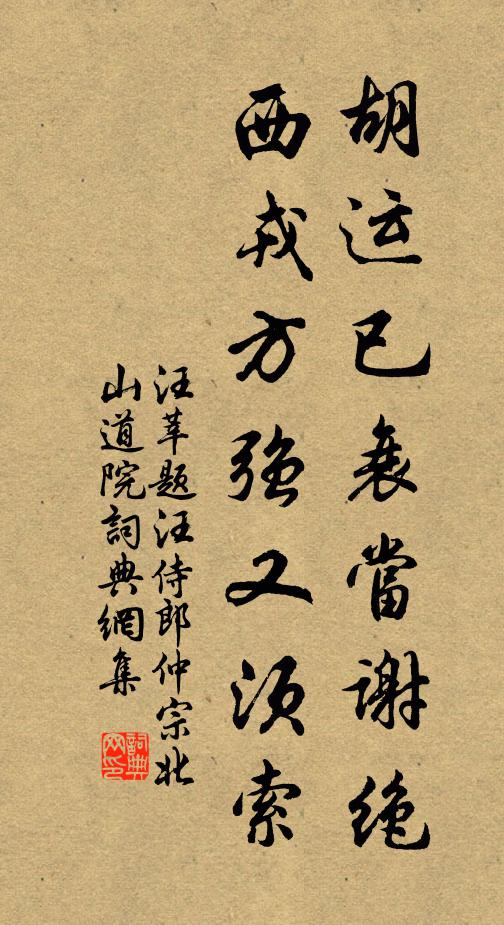 胡运已衰當谢绝
西戎方強又须索
汪莘题汪侍郎仲宗北
山道院詞典網集
詞典
网印